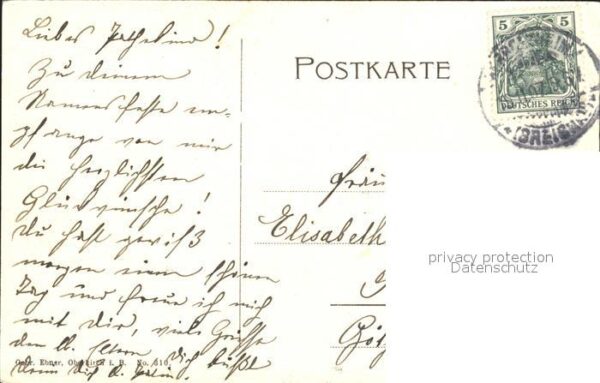 Liebes
Zu deinem
Namensfeste em-
pfange von mir
die herzlichsten
Glückwünsche!
Du hast gewiß
morgen einen schönen
Tag und freue ich mich
mit dir, viele Grüsse
den lb. Eltern, dich küßt
POSTKARTE
5 5
DEUTSCHES REICH
(BREISGAU)
Fräu
Elisabeth
privacy protection
Datenschutz
Gebr. Ebner, i. B. No. 510